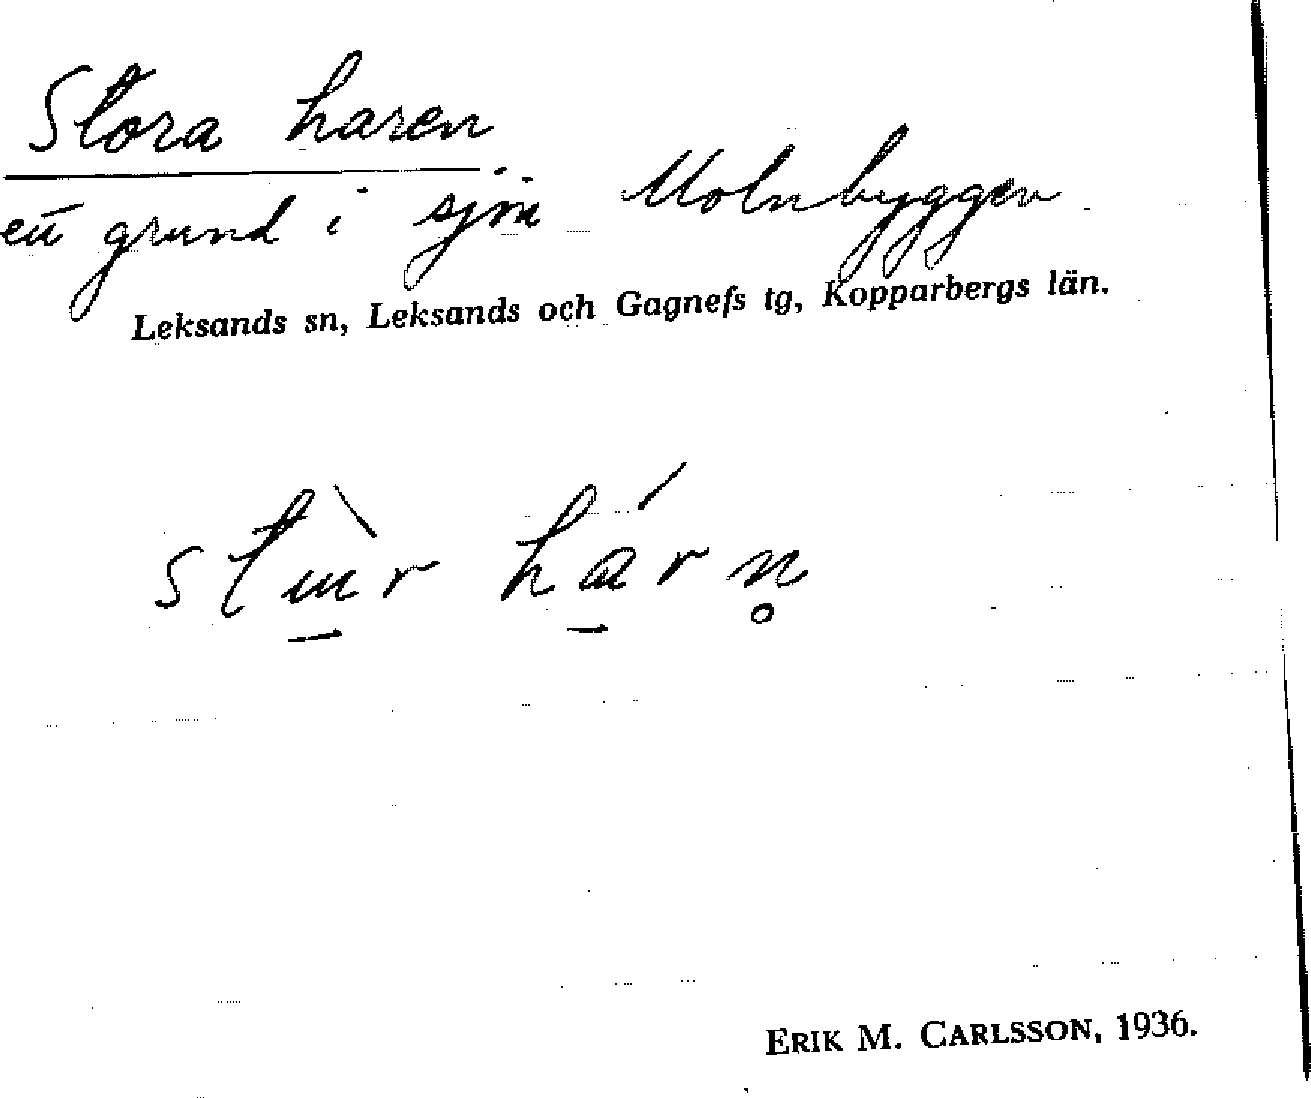 Stora haren
ett grund i sjön Molnbyggen
Leksands sn, Leksands och Gagnefs tg, Kopparbergs län.
ERIK M. CARLSSON, 1936.